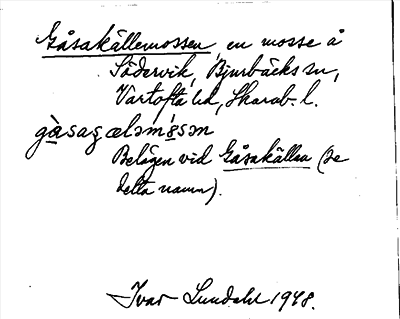 Gåsakällemossen, en mosse å
Södervik, Bjurbäcks sn,
Vartofta hd, Skarab. l.
gàsagæləmʹåsən
Belägen vid Gåsakällan (se
detta namn).
Ivar Lundahl 1948.